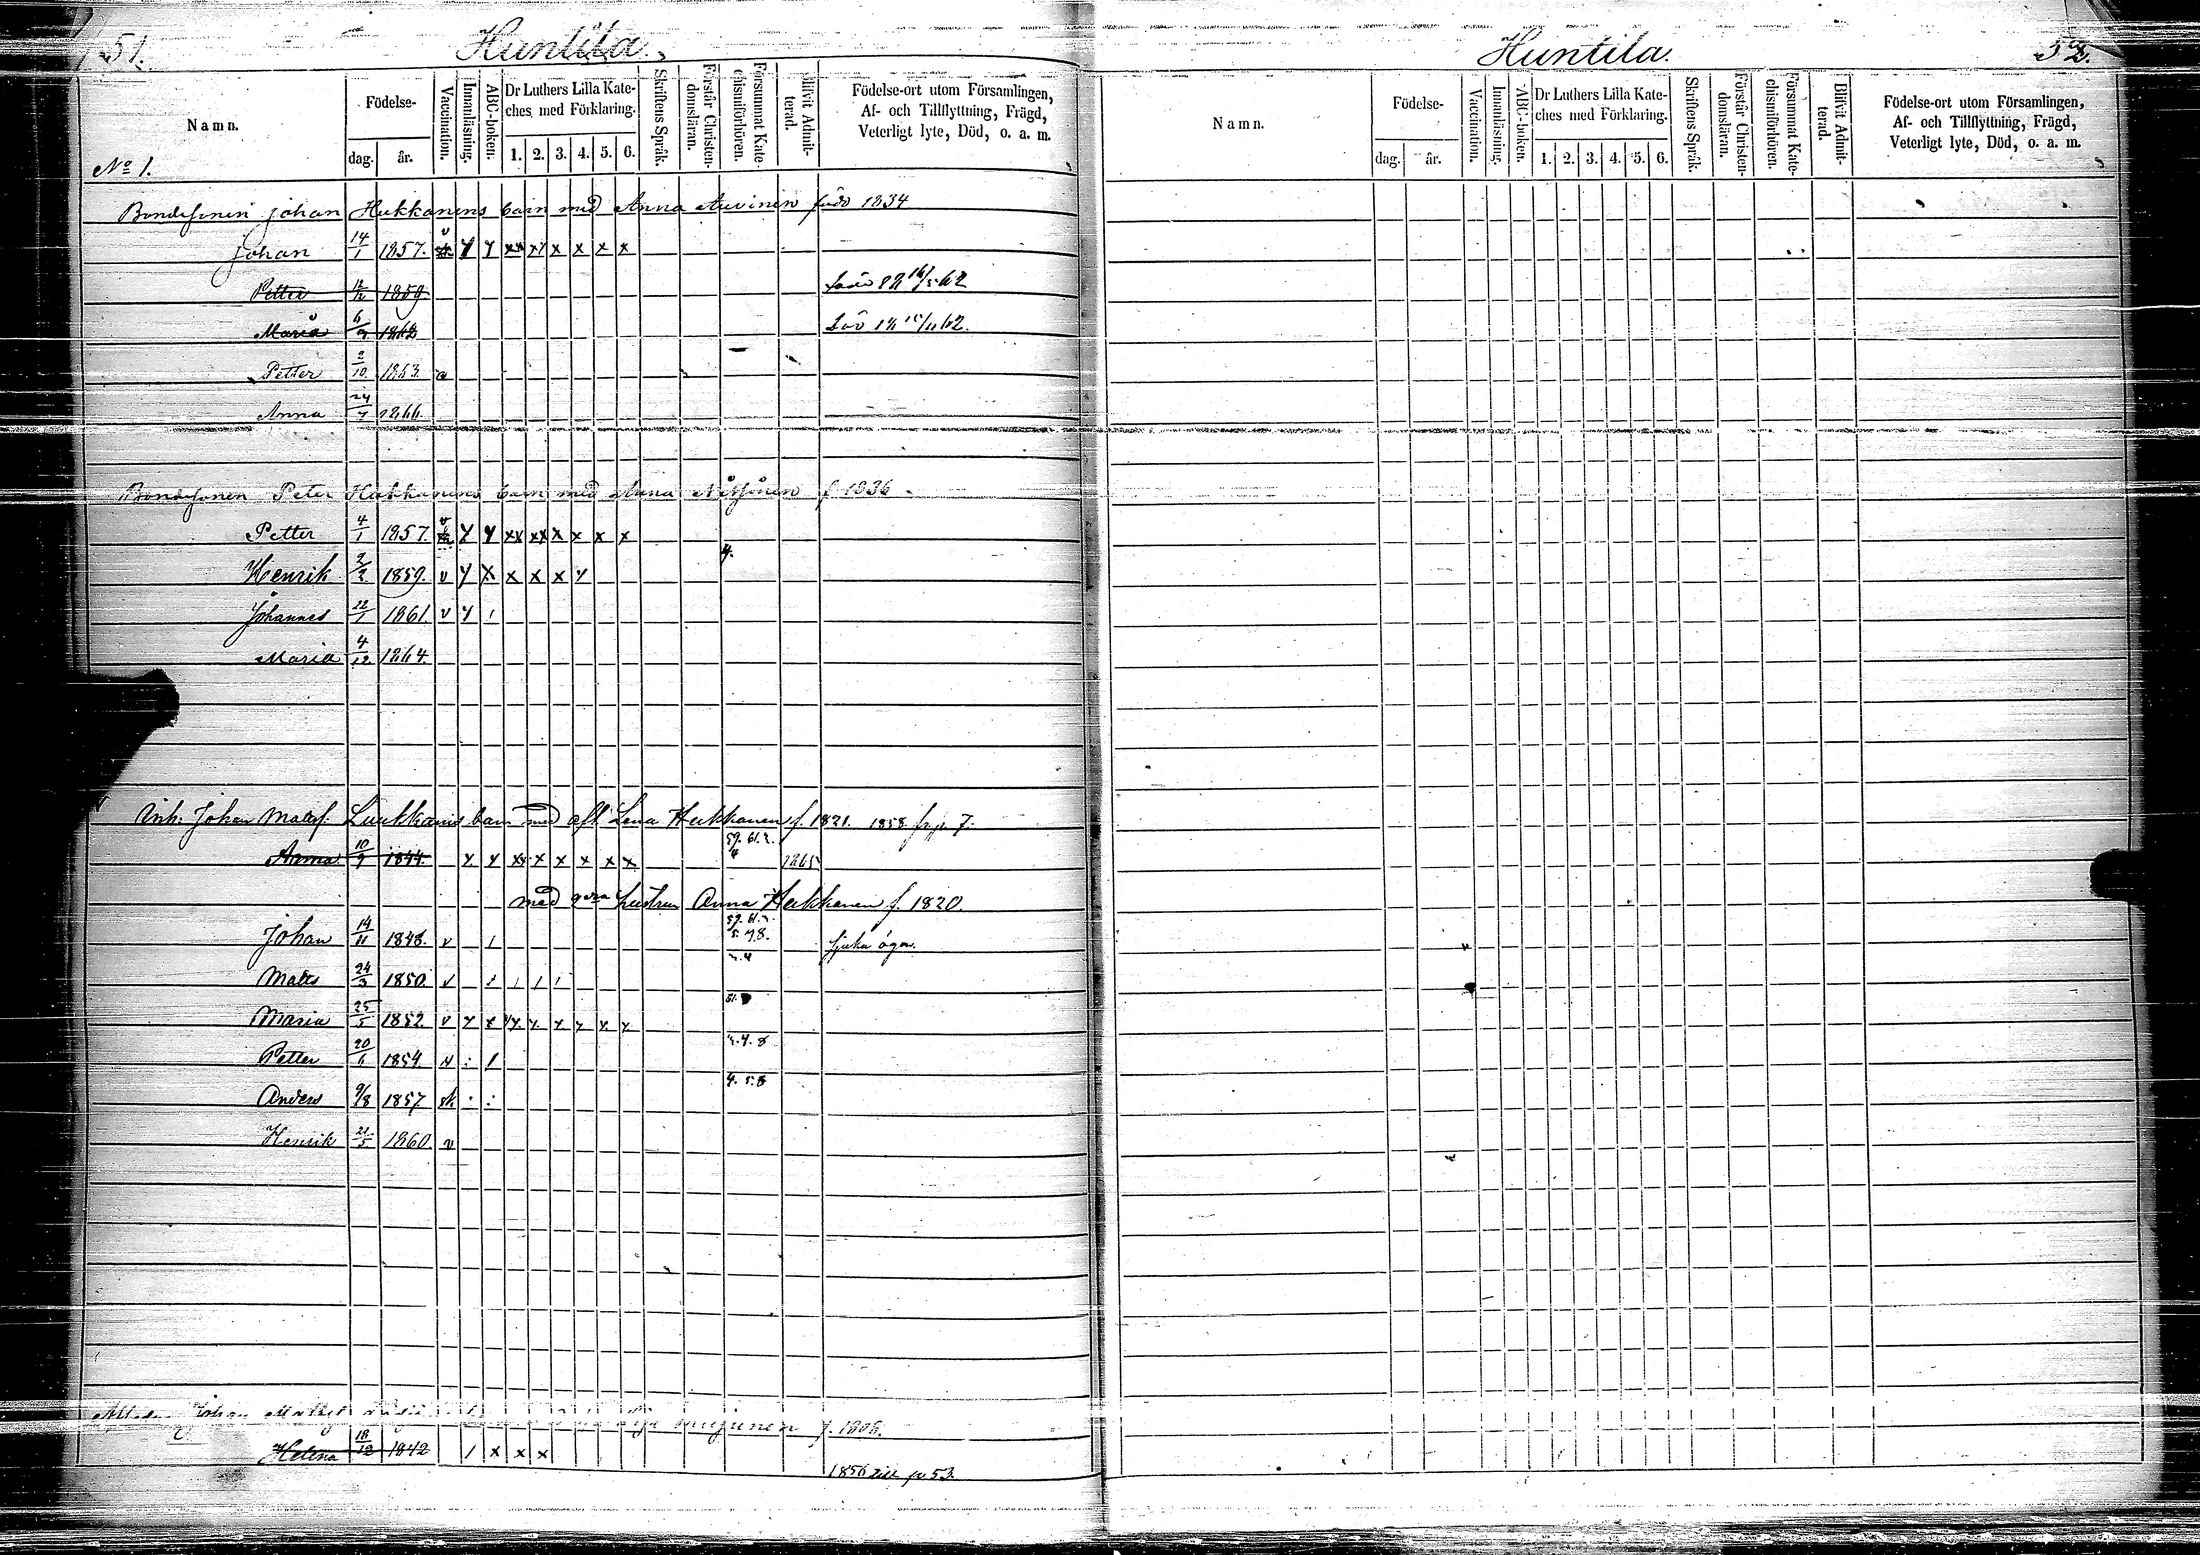 51.
Huntila.
Namn.
Födelse-
dag.
år.
Vaccination.
Innanläsning.
ABC-boken.
Dr Luthers Lilla Kate-
ches med Förklaring.
1. 2. 3. 4. 5. 6.
Skriftens Språk.
Förstår Christen-
domsläran.
Försummat Kate-
chismiförhören.
Blifvit Admit-
terad.
Födelse-ort utom Församlingen,
Af- och Tillflyttning, Frägd,
Veterligt lyte, Död, o. a. m.
No 1.
Bondesonen Johan Hukkanens barn med Anna Auvinen född 1834
Johan 14/1 1857. v y y xx xy x x x x
Petter 12/12 1859
Maria 6/9 1862
Petter 2/10 1863.
Anna 24/7 1866.
Bondesonen Peter Hukkanens barn med Anna f 1836.
Petter 4/1 1857. v y y xx xx x x x x
Henrik 2/2 1859. v y x x x x y 4.
Johannes 22/1 1861 v y 1
Maria 4/12 1864.
Inh: Johan Matsf. Lukkanens barn med afl. Lena Hukkanen f. 1821. 1858 fr p. 7.
Anna 10/9 1844. x y xx x x x x x 1865
med 2dra hustrun Anna Hukkanen f. 1820.
Johan 14/11 1848. v 1 sjuka ögon.
Matts 24/3 1850. v 1 1 1 1
Maria 25/5 1852. v y x y y y y y y
Petter 20/6 1854. 3. 4. 8
Anders 9/8 1857 4. 5. 8
Henrik 21/5 1860. v
Johan f. 1808.
Helena 18/12 1842 1 x x x
1856 till p 53.
Huntila.
52.
Namn.
Födelse-
dag.
år.
Vaccination.
Innanläsning.
ABC-boken.
Dr Luthers Lilla Kate-
ches med Förklaring.
1. 2. 3. 4. 5. 6.
Skriftens Språk.
Förstår Christen-
domsläran.
Försummat Kate-
chismiförhören.
Blifvit Admit-
terad.
Födelse-ort utom Församlingen,
Af- och Tillflyttning, Frägd,
Veterligt lyte, Död, o. a. m.